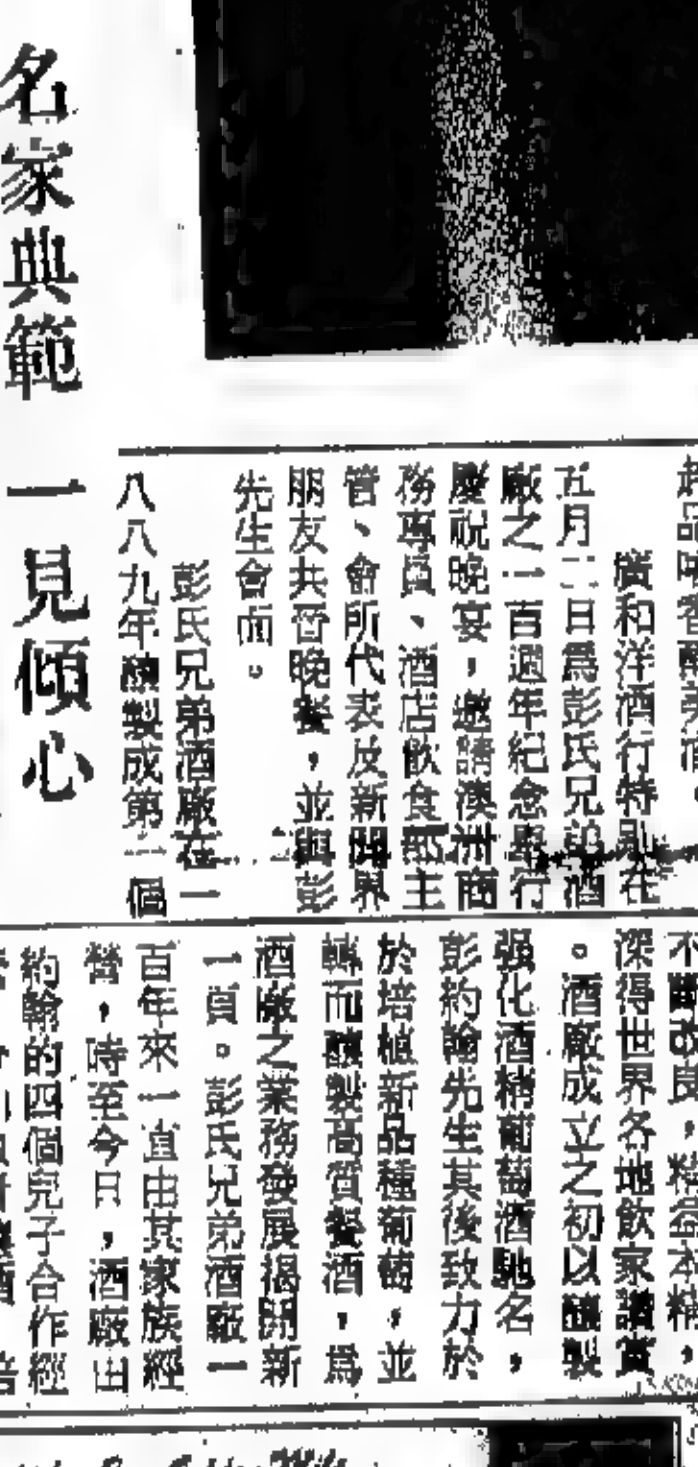 名家典範 一見傾心
廣和洋酒行特別在
五月二日爲彭氏兄弟酒
廠之一百週年紀念舉行
慶祝晚宴，邀請澳洲商
務專員、酒店飲食部主
管、會所代表及新聞界
朋友共晉晚餐，並與彭
先生會面。
彭氏兄弟酒廠在一
八八九年釀製成第一個
不斷改良，精益求精，
深得世界各地飲家讚賞
。酒廠成立之初以釀製
强化酒精葡萄酒馳名，
彭約翰先生其後致力於
於培植新品種葡萄，並
轉而釀製高質餐酒，爲
酒廠之業務發展揭開新
一頁。彭氏兄弟酒廠一
百年來一直由其家族經
營，時至今日，酒廠由
約翰的四個兒子合作經